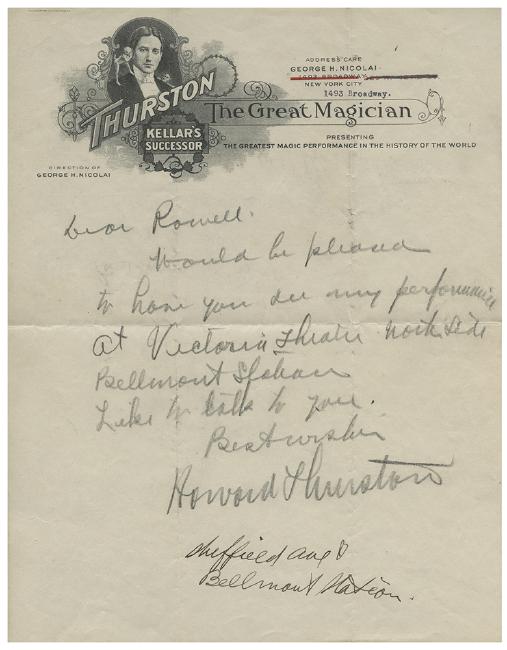 ADDRESS CARE
GEORGE H. NICOLAI
1493 BROADWAY
NEW YORK CITY
1493 Broadway.
THURSTON
The Great Magician
KELLAR'S
SUCCESSOR
PRESENTING
THE GREATEST MAGIC PERFORMANCE IN THE HISTORY OF THE WORLD
DIRECTION OF
GEORGE H. NICOLAI
Dear Rowell.
Would be pleased
to have you see my performance
at Victoria Theatre North Side
Bellmont
Like to talk to you.
Best wishes
Howard Thurston
Sheffield ave &
Bellmont Station.